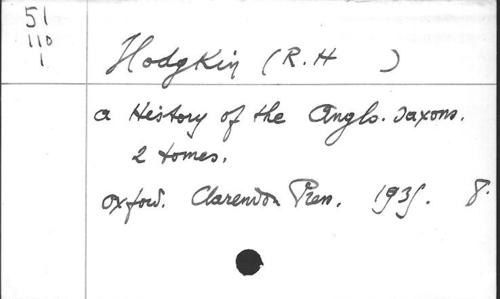 51
110
1
Hodgkin (R.H )
a History of the Anglo-Saxons.
2 tomes.
Oxford. Clarendon Press. 1935. 8.